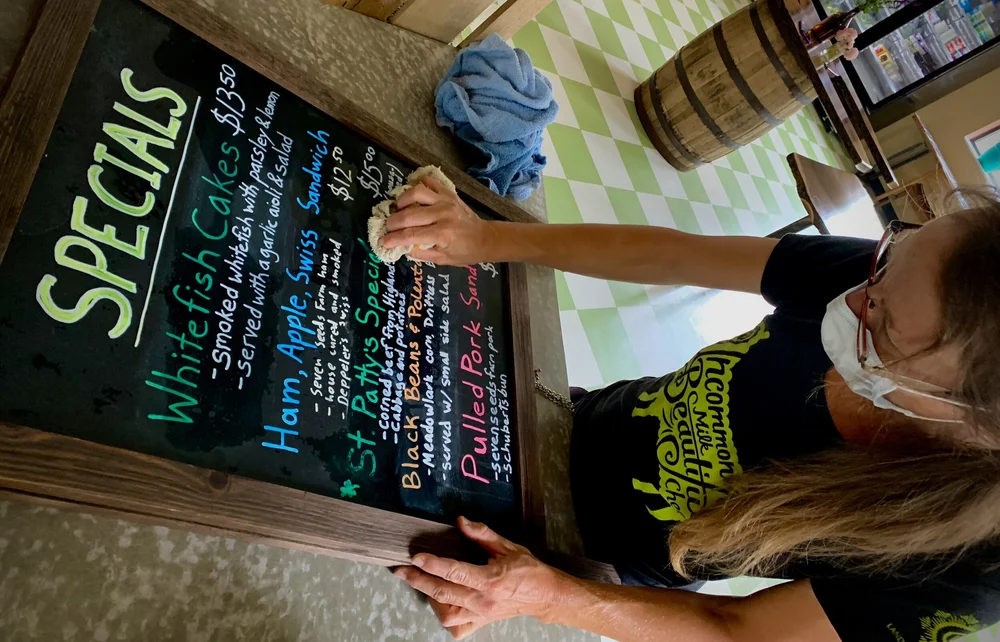 SPECIALS
Whitefish Cakes $13.50
- Smoked whitefish with parsley & lemon
- served with a garlic aioli & salad
Ham, Apple, Swiss Sandwich
- Seven Seeds Farm ham $12.50
- house cured and smoked
- Deppeler's swiss
* St Patty's Special $15.00
- corned beef from Highland
- Cabbage and potatoes
Black Beans & Polenta
- Meadowlark corn, Driftless
- served w/ small side salad
Pulled Pork Sand
- seven seeds farm pork
- schubert's bun
Uncommon
Milk
Beautiful